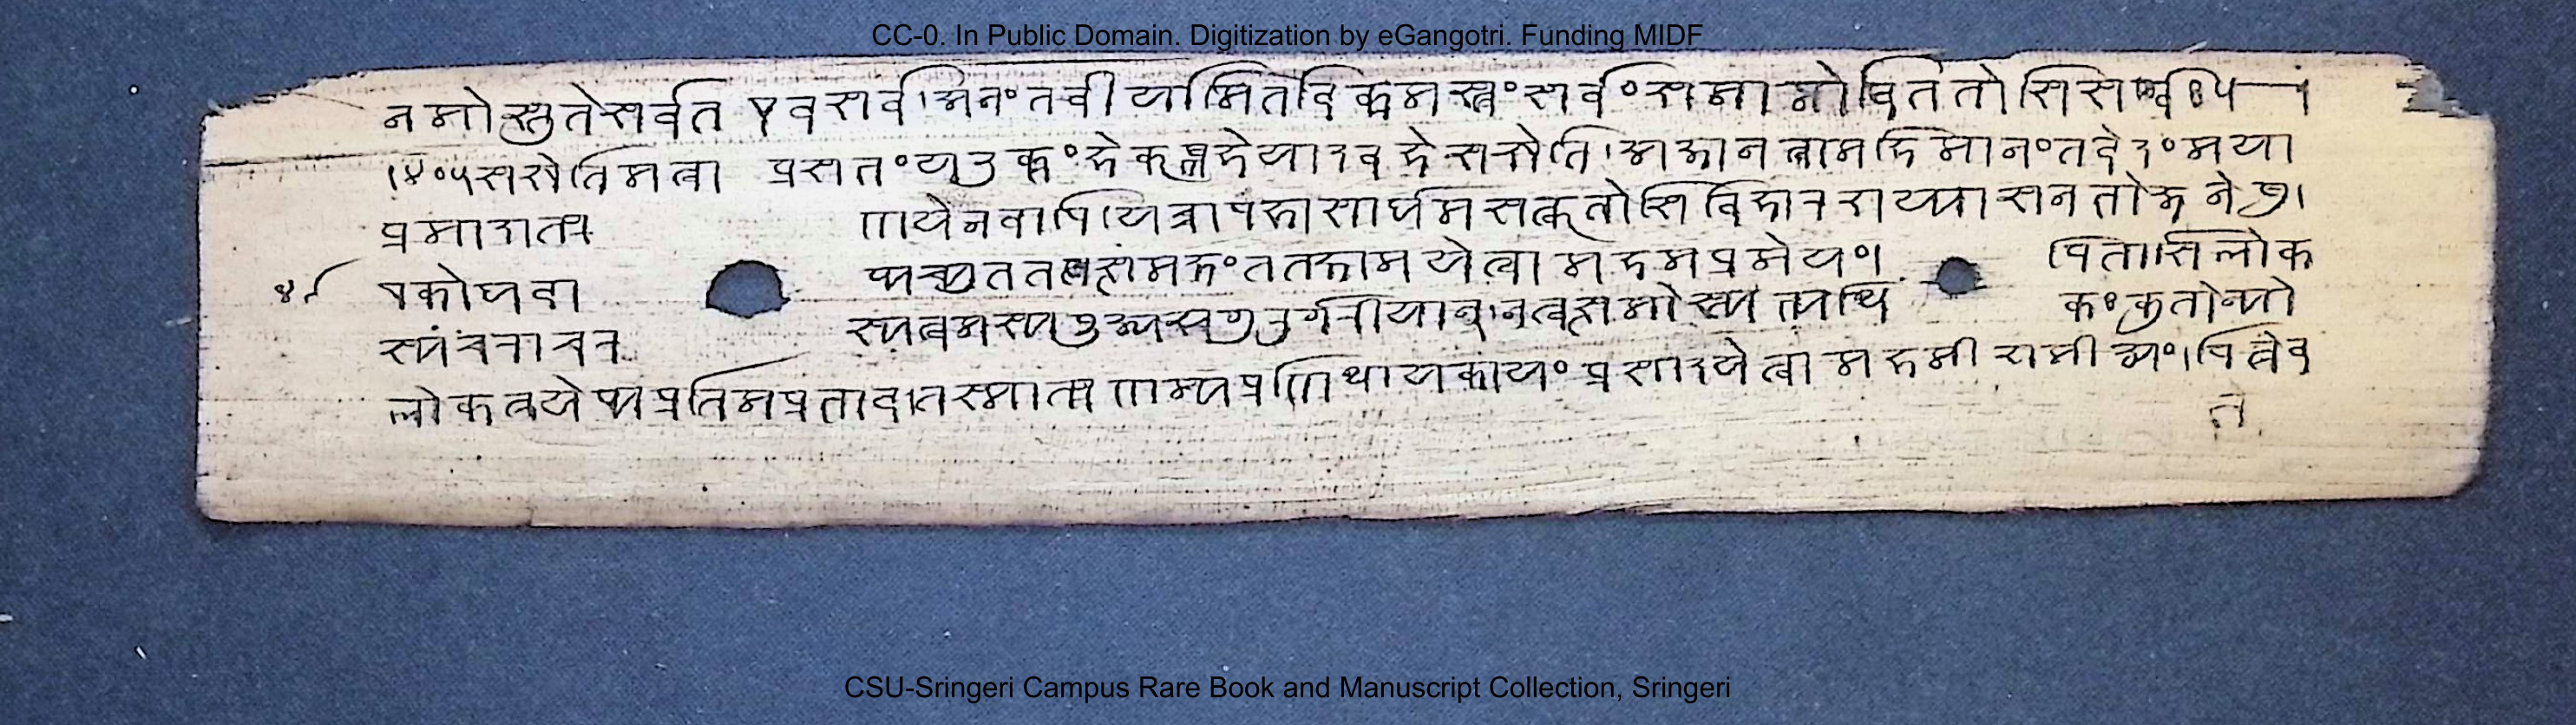 CC-0. In Public Domain. Digitization by eGangotri. Funding MIDF
नमोस्तुते सर्वत एव सर्व। अनंतवीर्यामितविक्रमस्त्वं सर्वं समाप्नोषि ततोसि
सखेति मत्वा प्रसभं यदुक्तं हे कृष्ण हे यादव हे सखेति। अजानता महिमानं तवेदं मया
प्रमादात्प्रणयेन वापि। यच्चापहासार्थमसत्कृतोसि विहारशय्यासनभोजनेषु।
एकोथवाप्यच्युत तत्समक्षं तत्क्षामये त्वामहमप्रमेयं। पितासि लोक
स्य चराचरस्य त्वमस्य पूज्यस्य गुरुर्गरीयान्। न त्वत्समोस्त्यभ्यधिकः कुतोन्यो
लोकत्रयेप्यप्रतिमप्रभाव। तस्मात्प्रणम्य प्रणिधाय कायं प्रसादये त्वामहमीशमीड्यं। पितेव
CSU-Sringeri Campus Rare Book and Manuscript Collection, Sringeri